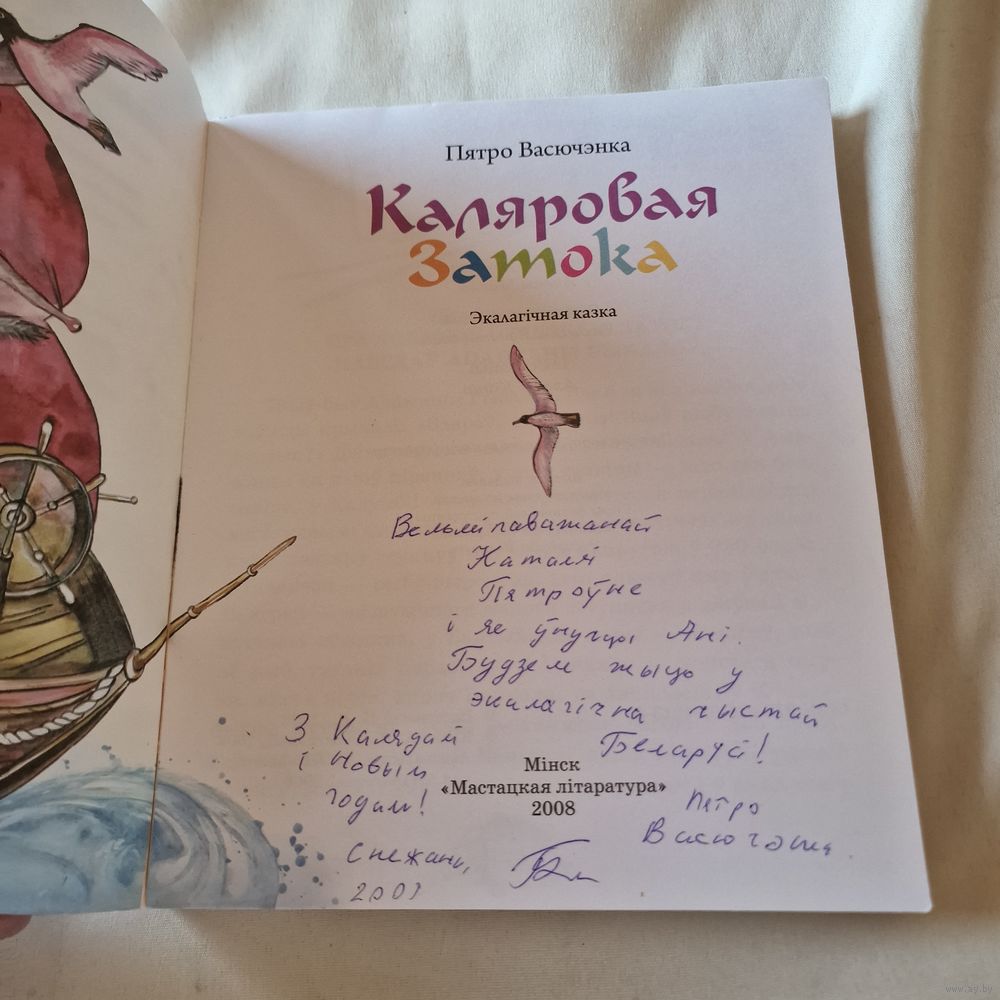 Пятро Васючэнка
Каляровая
Затока
Экалагічная казка
Вельмі паважанай
Наталлі
Пятроўне
і яе ўнучцы Ані.
Будзем жыць у
экалагічна чыстай
Беларусі!
З Калядамі
і Новым
годам!
Мінск
«Мастацкая літаратура»
2008
Пятро
Васючэнка
Снежань,
www.ay.by